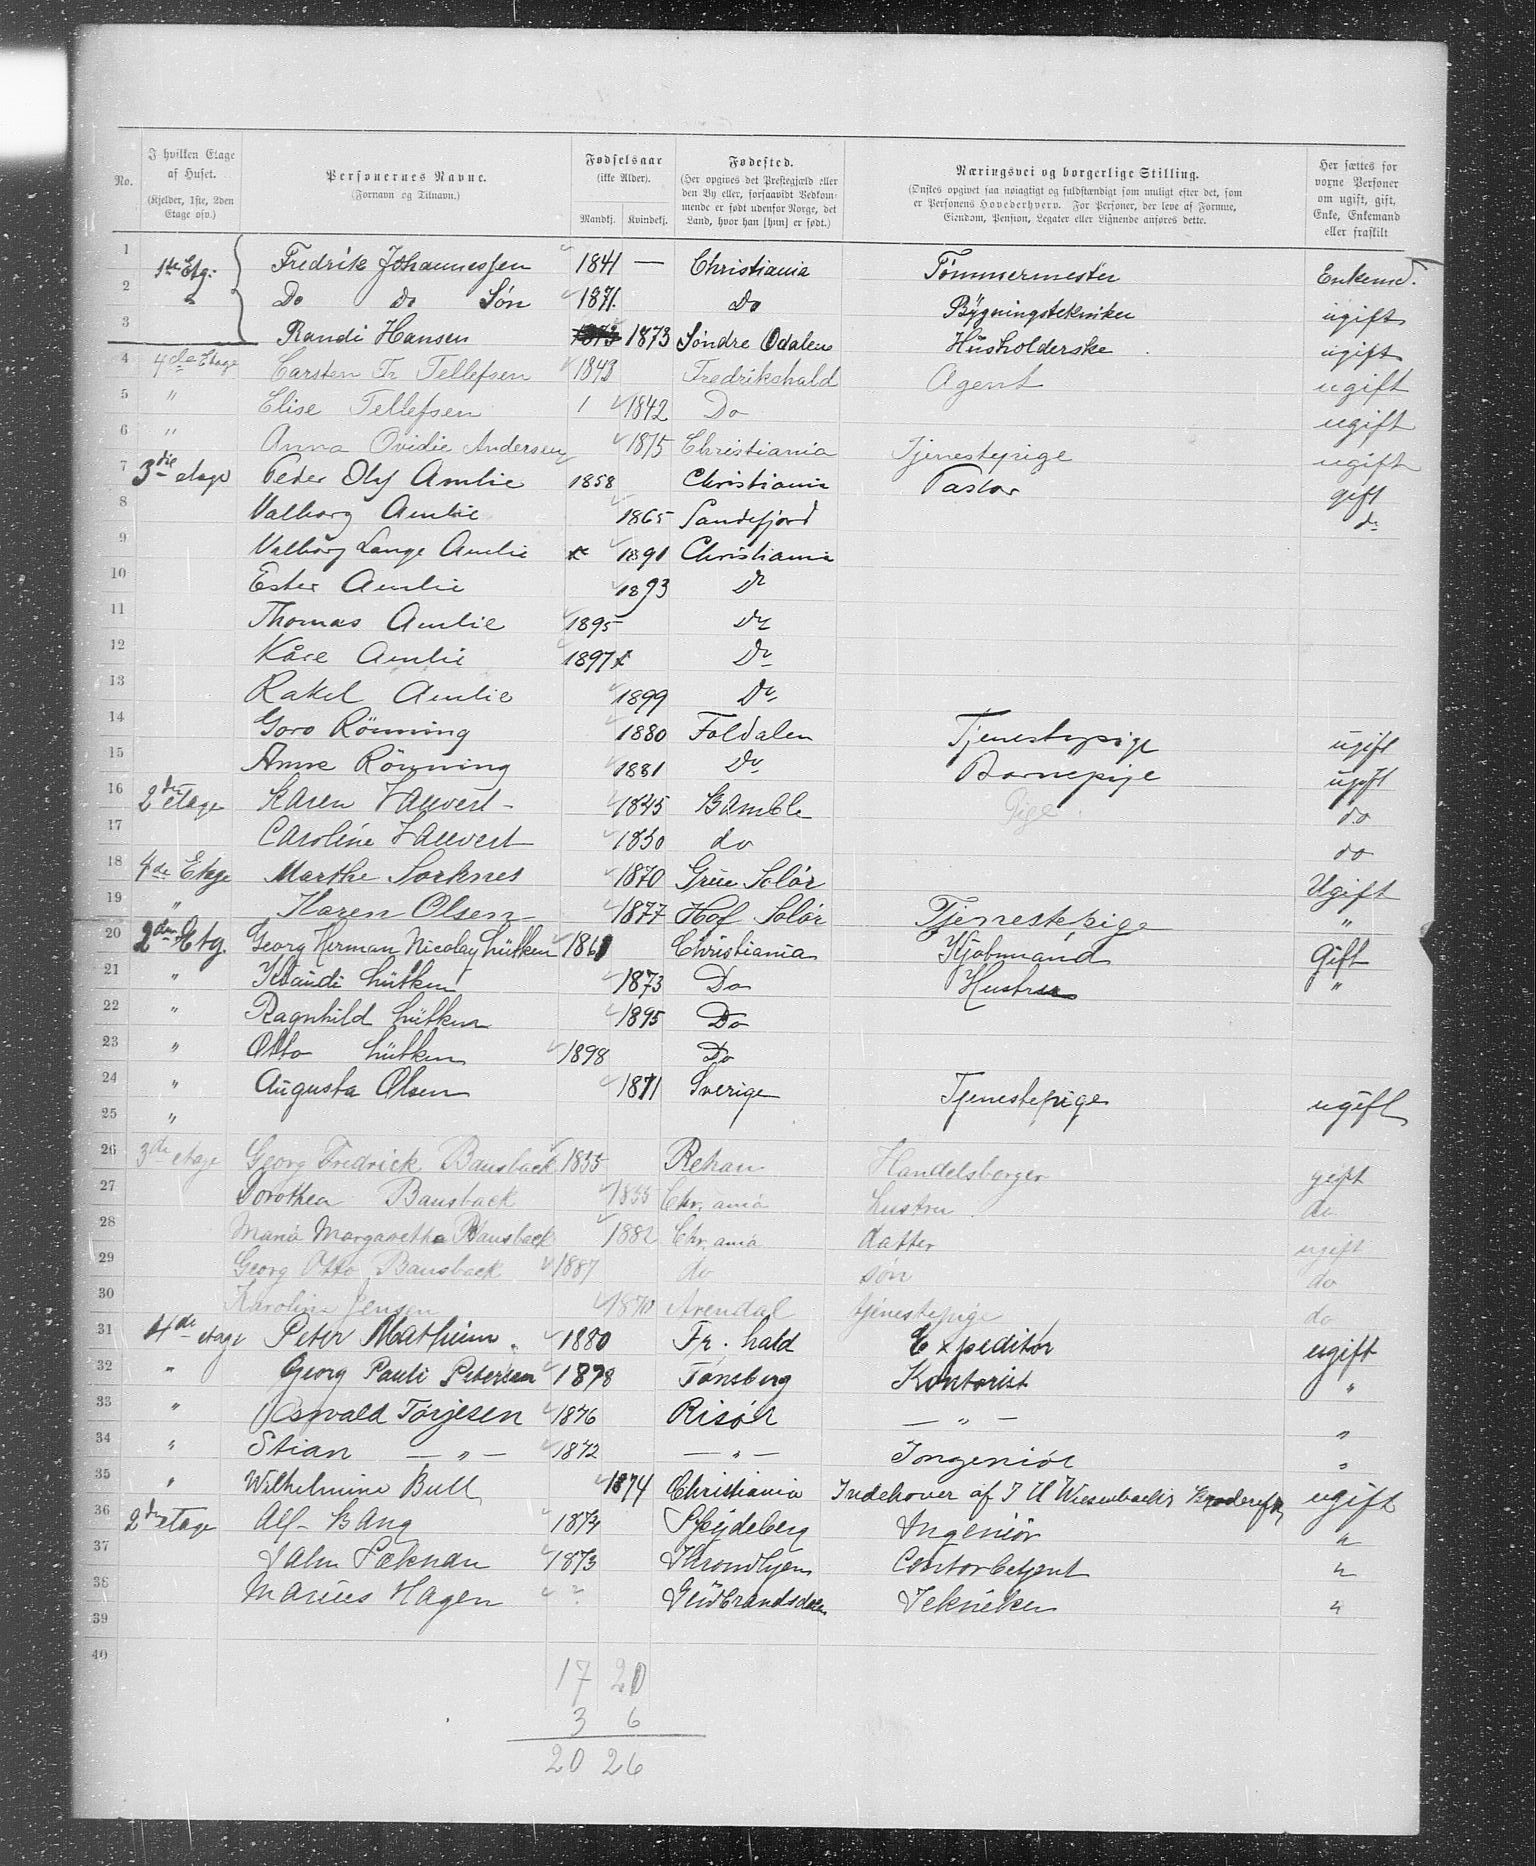 No. | I hvilken Etage af Huset. (Kjelder, 1ste, 2den Etage osv.) | Personernes Navne. (Fornavn og Tilnavn.) | Fødselsaar (ikke Alder). Mandkj. Kvindekj. | Fødested. (Her opgives det Prestegjæld eller den By eller, forsaavidt Vedkommende er født udenfor Norge, det Land, hvor han [hun] er født.) | Næringsvei og borgerlige Stilling. (Ønskes opgivet saa nøiagtigt og fuldstændigt som muligt efter det, som er Personens Hovederhverv. For Personer, der leve af Formue, Eiendom, Pension, Legater eller Lignende anføres dette. | Her sættes for voxne Personer om ugift, gift, Enke, Enkemand eller fraskilt
1 1ste Etg: Fredrik Johannessen 1841 — Christiania Tømmermester Enkemd.
2 " Do Do Søn 1871. Do Bygningstekniker ugift
3 Randi Hansen 1873 Søndre Odalen Husholderske ugift
4 4de Etage Carsten Fr Tellefsen 1843 Fredrikshald Agent ugift
5 " Elise Tellefsen 1842 Do ugift
6 " Anna Ovidie Andersen 1875 Christiania Tjenestepige ugift
7 3die etage Peder Olaf Amlie 1858 Christiania Pastor gift
8 Valborg Amlie 1865 Sandefjord do
9 Valborg Lange Amlie 1891 Christiania
10 Ester Amlie 1893 Do
11 Thomas Amlie 1895 Do
12 Kåre Amlie 1897 Do
13 Rakel Amlie 1899 Do
14 Goro Rönning 1880 Foldalen Tjenestepige ugift
15 Anne Rönning 1881 Do Barnepige ugift
16 2den etage Karen 1845 Bamble Pige do
17 Caroline 1850 do do
18 4de Etage Marthe Sorknes 1870 Grue Solør Ugift
19 " Karen Olsen 1877 Hof Solør Tjenestepige "
20 2den Etg. Georg Herman Nicolay Lütken 1861 Christiania Kjøbmand Gift
21 " Klaudi Lütken 1873 Do Hustru "
22 " Ragnhild Lütken 1895 Do
23 " Otto Lütken 1898 Do
24 " Augusta Olsen 1871 Sverige Tjenestepige ugift
25 "
26 3die etage Georg Fredrick Bausback 1855 Rehau Handelsborger gift
27 Dorothea Bausback 1855 Chr.ania hustru do
28 Maria Margaretha Bausback 1882 Chr.ania datter ugift
29 Georg Otto Bausback 1887 do søn do
30 Karoline Jensen 1870 Arendal tjenestepige do
31 4de etage Peter Mathiesen 1880 Fr.hald Expeditør ugift
32 " Georg Pauli Petersen 1878 Tønsberg Kontorist "
33 " Osvald Törjesen 1876 Risör — " — "
34 " Stian — " — 1872 — " — Ingeniör "
35 " Wilhelmine Bull 1874 Christiania Indehaver af I U Wiesenbach's ugift
36 2den etage Alf Bang 1874 Spydeberg Ingeniör "
37 1873 Throndhjem Contorbetjent "
38 Marius Hagen ? Gudbrandsdalen Tekniker "
39
40
17 20
3 6
20 26